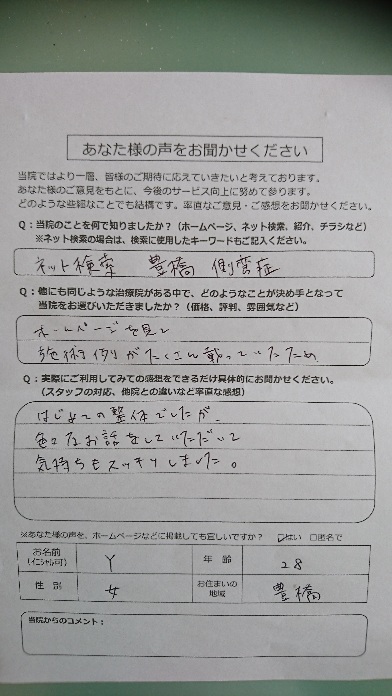 あなた様の声をお聞かせください
当院ではより一層、皆様のご期待に応えていきたいと考えております。
あなた様のご意見をもとに、今後のサービス向上に努めて参ります。
どのような些細なことでも結構です。率直なご意見・ご感想をお聞かせください。
Q：当院のことを何で知りましたか？（ホームページ、ネット検索、紹介、チラシなど）
※ネット検索の場合は、検索に使用したキーワードもご記入ください。
ネット検索 豊橋 側弯症
Q：他にも同じような治療院がある中で、どのようなことが決め手となって
当院をお選びいただきましたか？（価格、評判、雰囲気など）
ホームページを見て
施術例がたくさん載っていたため
Q：実際にご利用してみての感想をできるだけ具体的にお聞かせください。
（スタッフの対応、他院との違いなど率直な感想）
はじめての整体でしたが
色々なお話をしていただいて
気持ちもスッキリしました。
※あなた様の声を、ホームページなどに掲載しても宜しいですか？ ☑はい □匿名で
お名前（イニシャル可） Y 年齢 28
性別 女 お住まいの地域 豊橋
当院からのコメント：